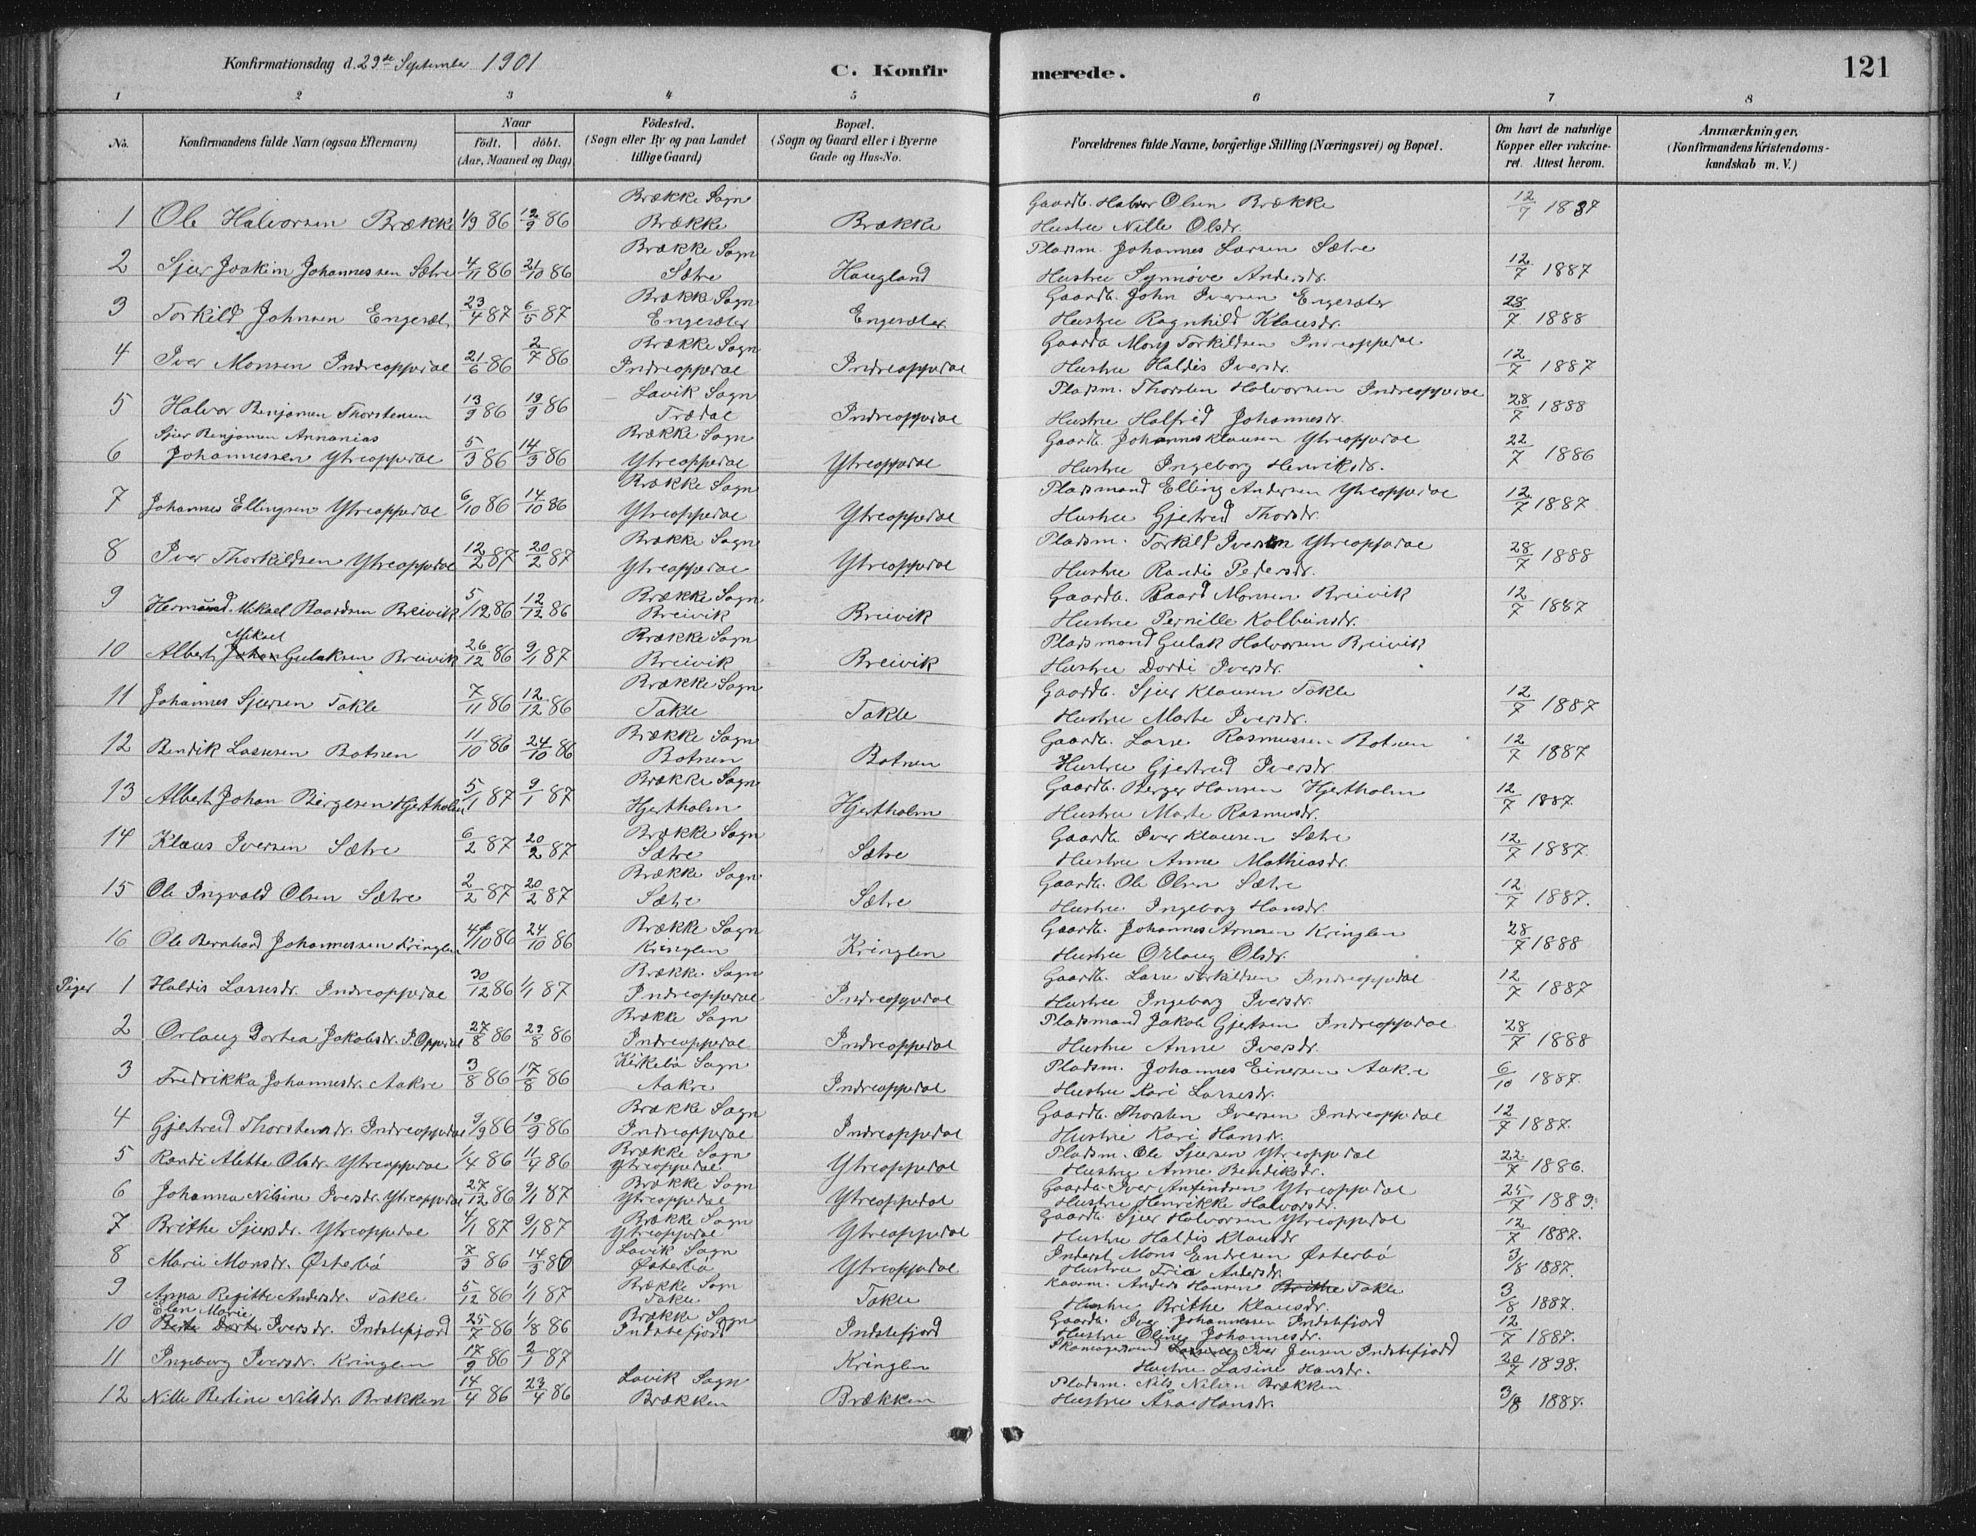 Konfirmationsdag d. 29de September 1901
C. Konfirmerede.
121
1 2 3 4 5 6 7 8
No. Konfirmandens fulde Navn (ogsaa Efternavn) Naar født. døbt. (Aar, Maaned og Dag) Fødested. (Sogn eller By og paa Landet tillige Gaard) Bopæl. (Sogn og Gaard eller i Byerne Gade og Hus-No. Forældrenes fulde Navne, borgerlige Stilling (Næringsvei) og Bopæl. Om havt de naturlige Kopper eller vakcineret. Attest herom. Anmærkninger. (Konfirmandens Kristendomskundskab m. V.)
1 Ole Halvorsen Brække 1/9 86 12/9 86 Brække Sogn Brække Brække Gaardb. Halvor Olsen Brække Hustru Nille Olsdr. 12/7 1887
2 Sjur Joakim Johannessen Sætre 4/11 86 21/10 86 Brække Sogn Sætre Haugland Pladsm. Johannes Larsen Sætre Hustru Synnøve Andersdr. 12/7 1887
3 Torkild Johnsen Engesæt. 23/4 87 6/5 87 Brække Sogn Engesæter Engesæter Gaardb. John Iversen Engesæter Hustru Ragnhild Klausdr. 28/7 1888
4 Iver Monsen Indreoppedal 21/6 86 2/7 86 Brække Sogn Indreoppedal Indreoppedal Gaardb. Mons Torkildsen Indreoppedal Hustru Haldis Iversdr. 12/7 1887
5 Halvor Benjamen Thorstensen 13/9 86 19/9 86 Lavik Sogn Trædal Indreoppedal Pladsm. Thorsten Halvorsen Indreoppedal Hustru Halfrid Johannesdr. 28/7 1888
6 Sjur Benjamen Annanias Johannessen Ytreoppedal 5/3 86 14/3 86 Brække Sogn Ytreoppedal Ytreoppedal Gaardb. Johannes Klausen Ytreoppedal Hustru Ingeborg Henriksdr. 22/7 1886
7 Johannes Ellingsen Ytreoppedal 6/10 86 14/10 86 Brække Sogn Ytreoppedal Ytreoppedal Pladsmand Elling Andersen Ytreoppedal Hustru Gjertrud Thorsdr. 12/7 1887
8 Iver Thorkildsen Ytreoppedal 12/2 87 20/2 87 Brække Sogn Ytreoppedal Ytreoppedal Pladsm. Torkild Iversen Ytreoppedal Hustru Randi Pedersdr. 28/7 1888
9 Hermund Mikael Baardsen Breivik 5/12 86 12/12 86 Brække Sogn Breivik Breivik Gaardb. Baard Monsen Breivik Hustru Pernille Kolbeinsdr. 12/7 1887
10 Albert Johan Mikael Gulaksen Breivik 26/12 86 9/1 87 Brække Sogn Breivik Breivik Pladsmand Gulak Halvorsen Breivik Hustru Dordi Iversdr.
11 Johannes Sjursen Takle 7/11 86 12/12 86 Brække Sogn Takle Takle Gaardb. Sjur Klausen Takle Hustru Marte Iversdr. 12/7 1887
12 Bendik Lassesen Botnen 11/10 86 24/10 86 Brække Sogn Botnen Botnen Gaardb. Lasse Rasmussen Botnen Hustru Gjertrud Iversdr. 12/7 1887
13 Albert Johan Bergesen Hjertholm 5/1 87 9/1 87 Brække Sogn Hjertholm Hjertholm Gaardb. Berger Hansen Hjertholm Hustru Marte Rasmusdr. 12/7 1887
14 Klaus Iversen Sætre 6/2 87 20/2 87 Brække Sogn Sætre Sætre Gaardb. Iver Klausen Sætre Hustru Anne Mathiasdr. 12/7 1887.
15 Ole Ingvald Olsen Sætre 2/2 87 20/2 87 Brække Sogn. Sætre Sætre Gaardb. Ole Olsen Sætre Hustru Ingeborg Hansdr. 12/7 1887.
16 Ole Bernhard Johannessen Kringlen 4/10 86 24/10 86 Brække Sogn Kringlen Kringlen Gaardb. Johannes Arnesen Kringlen Hustru Orlaug Olsdr. 28/7 1888
Piger 1 Haldis Lassesdr. Indreoppedal 30/12 86 1/1 87 Brække Sogn Indreoppedal Indreoppedal Gaardb. Lasse Torkildsen Indreoppedal Hustru Ingeborg Iversdr. 12/7 1887
2 Orlaug Dortea Jakobsdr. I. Oppedal 27/8 86 29/8 86 Brække Sogn Indreoppedal Indreoppedal Pladsmand Jakob Gjertsen Indreoppedal Hustru Anne Iversdr. 28/7 1888
3 Fredrikka Johannesdr. Aakre 3/8 86 17/8 86 Kirkebø Sogn Aakre Indreoppedal Pladsm. Johannes Einersen Aakre Hustru Kari Larsesdr. 6/10 1887.
4 Gjertrud Thorstensdr. Indreoppedal 9/9 86 19/9 86 Brække Sogn Indreoppedal Indreoppedal Gaardb. Thorsten Iversen Indreoppedal Hustru Kari Hansdr. 12/7 1887.
5 Randi Alette Olsdr. Ytreoppedal 1/4 86 11/4 86 Brække Sogn Ytreoppedal Ytreoppedal Pladsm. Ole Sjursen Ytreoppedal Hustru Anne Bendiksdr. 22/7 1886.
6 Johanna Nilsine Iversdr. Ytreoppedal 27/12 86 9/1 87 Brække Sogn Ytreoppedal Ytreoppedal Gaardb. Iver Anfindsen Ytreoppedal Hustru Henrikke Halvorsdr. 25/7 1889.
7 Brithe Sjursdr. Ytreoppedal 4/1 87 9/1 87 Brække Sogn Ytreoppedal Ytreoppedal Gaardb. Sjur Halvorsen Ytreoppedal Hustru Haldis Klausdr 12/7 1887.
8 Marie Monsdr. Østerbø 7/3 86 14/3 86 Lavik Sogn Østerbø Ytreoppedal Inderst Mons Endresen Østerbø Hustru Andersdr. 3/8 1887.
9 Anna Regitte Andersdr. Takle 5/12 86 1/1 87 Brække Sogn Takle Takle Kaarm. Anders Hansen Brithe Takle Hustru Brithe Klausdr. 3/8 1887.
10 Elen Marie Berte Dorte Iversdr. Indstefjord 25/7 86 1/8 86 Brække Sogn Indstefjord Indstefjord Gaardb. Iver Johannessen Indstefjord Hustru Oline Johannesdr. 12/7 1887.
11 Ingeborg Iversdr. Kringlen 17/9 86 2/1 87 Kringlen Iver Jensen Indstefjord Hustru Lasine Hansdr. 20/7 1898.
12 Nille Bertine Nilsdr. Brækken 14/4 86 23/4 86 Lavik Sogn Brækken Brækken Pladsm. Nils Nilsen Brækken Hustru Åsa Hansdr. 3/8 1887.